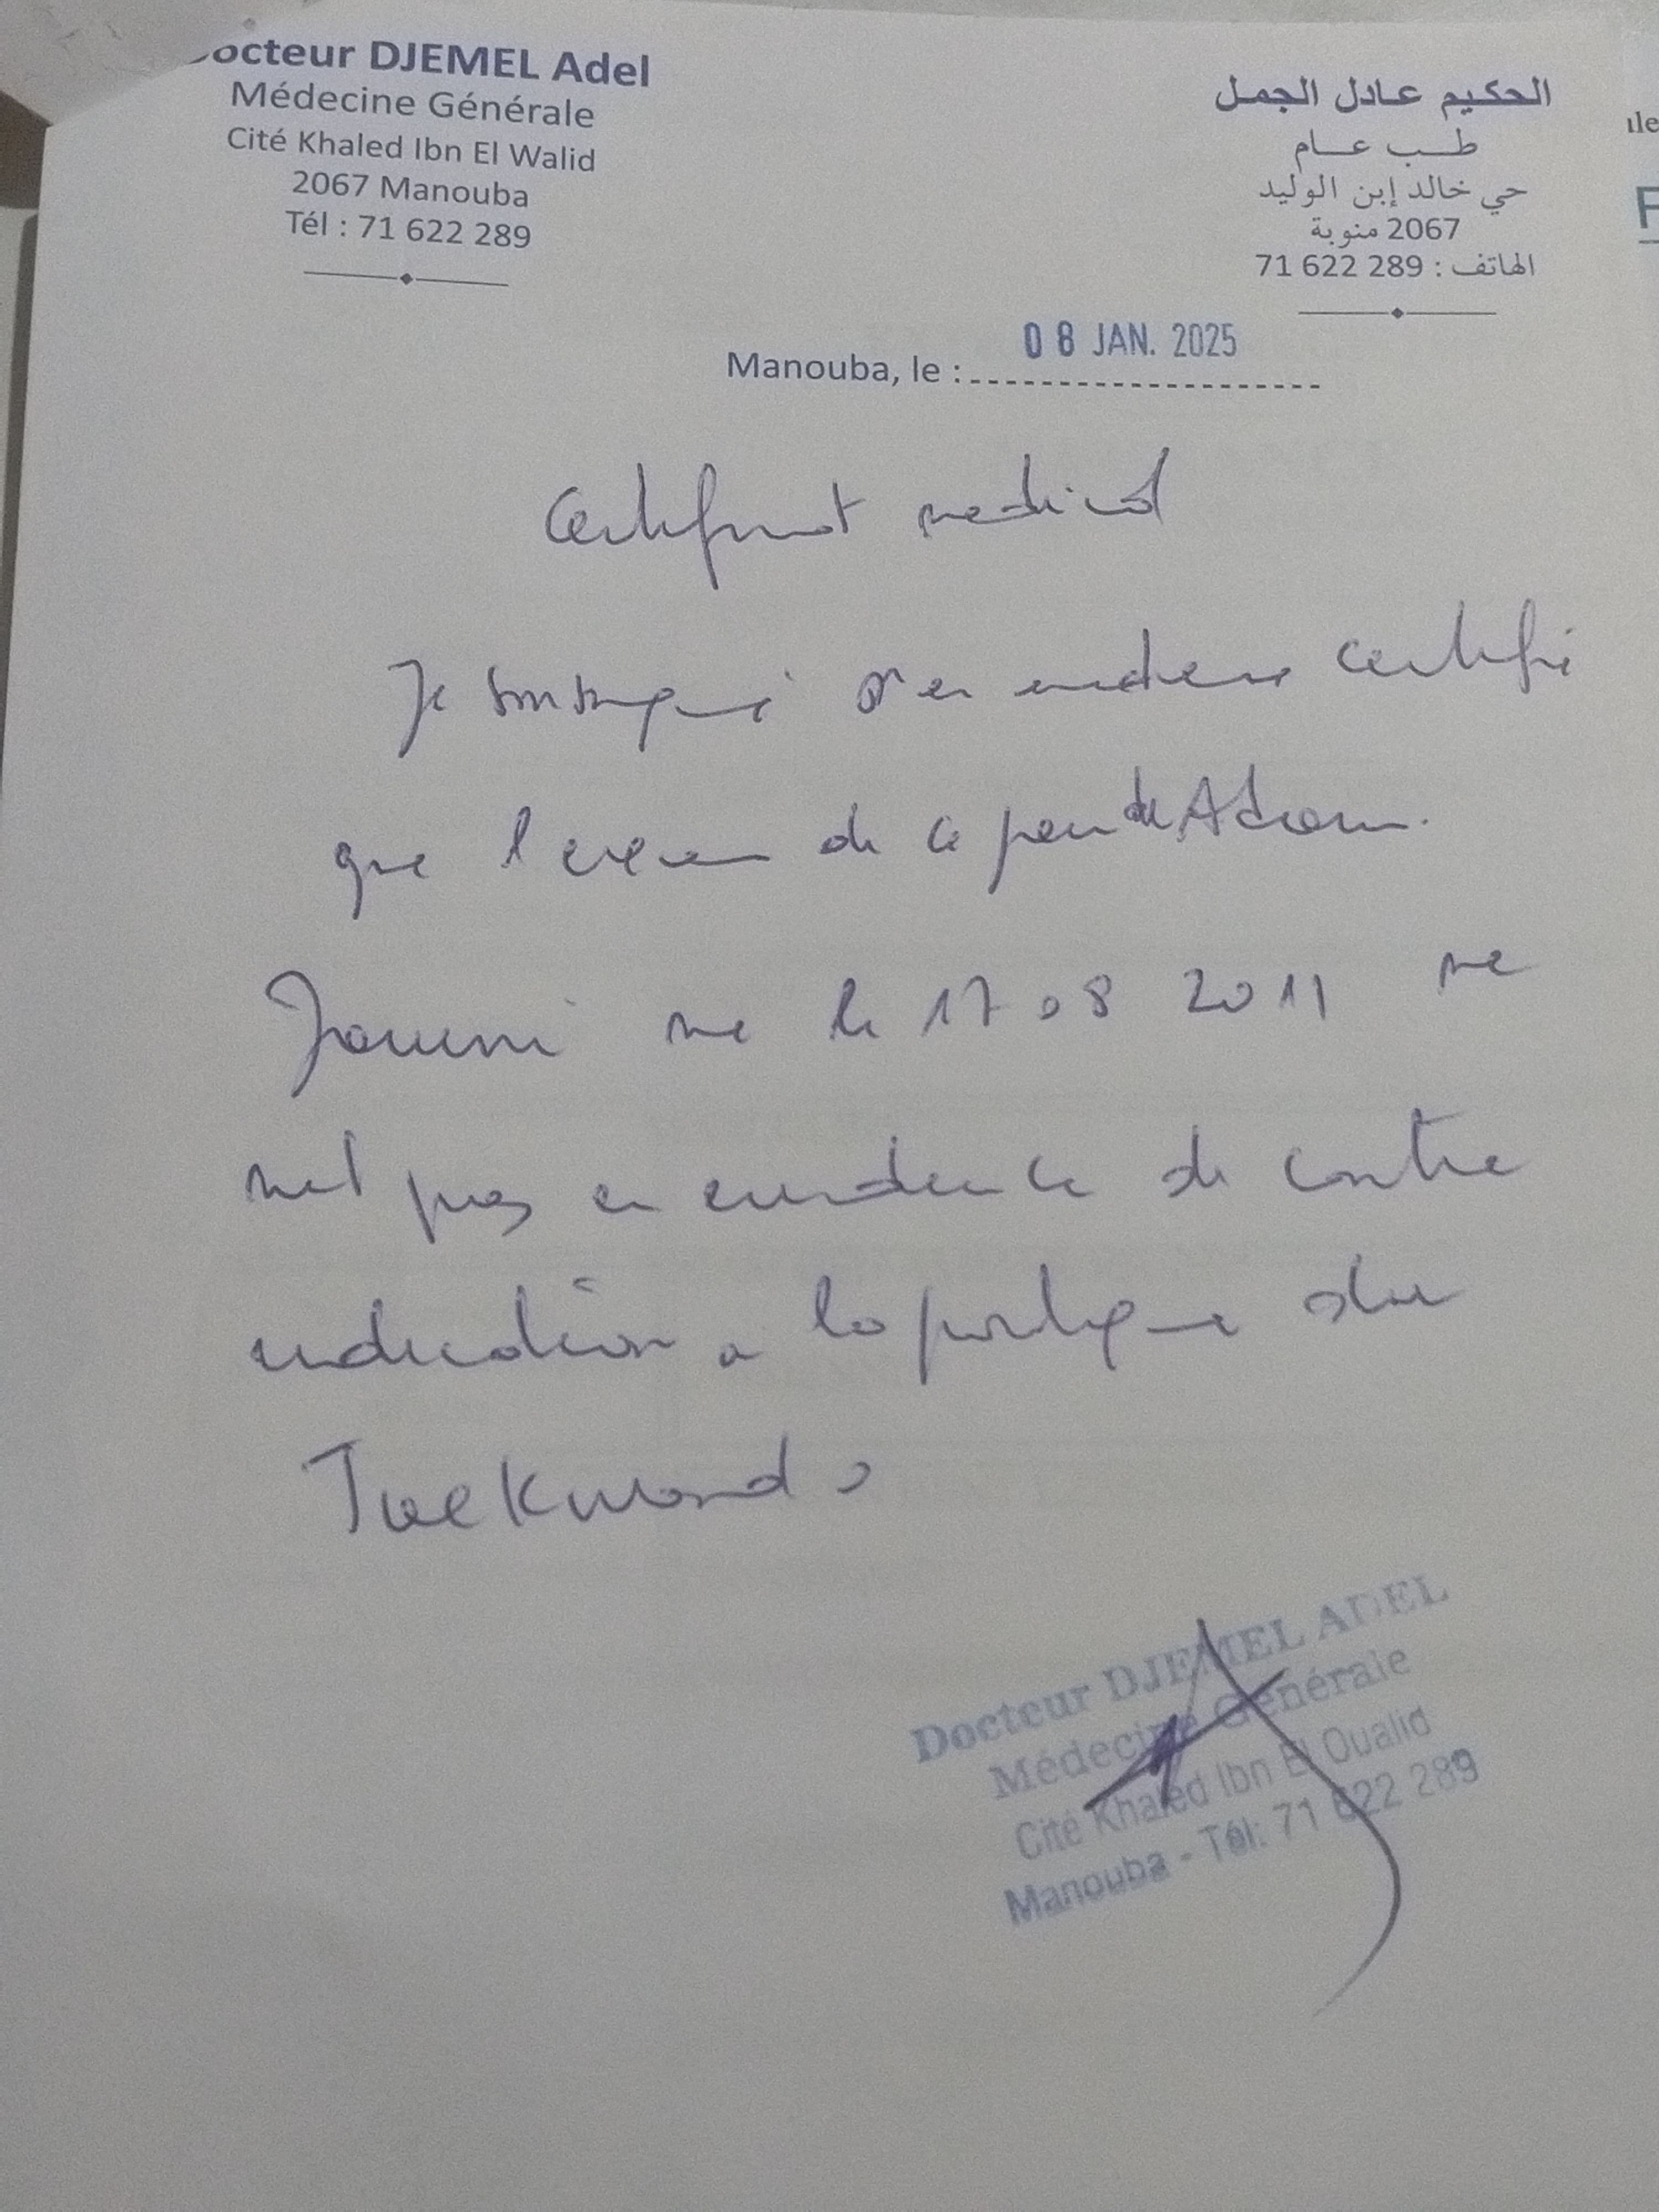 Docteur DJEMEL Adel
Médecine Générale
Cité Khaled Ibn El Walid
2067 Manouba
Tél : 71 622 289
الحكيم عادل الجمل
طب عام
حي خالد إبن الوليد
2067 منوبة
الهاتف : 289 622 71
Manouba, le : 08 JAN. 2025
Certificat medical
Je soussigné Dr en medecine certifie
que l'examen de ce jour de Adem
né le 17 08 2011 ne
met pas en evidence de contre
indication a la pratique du
Taekwondo
Docteur DJEMEL ADEL
Médecine Générale
Cité Khaled Ibn El Oualid
Manouba - Tél: 71 622 289